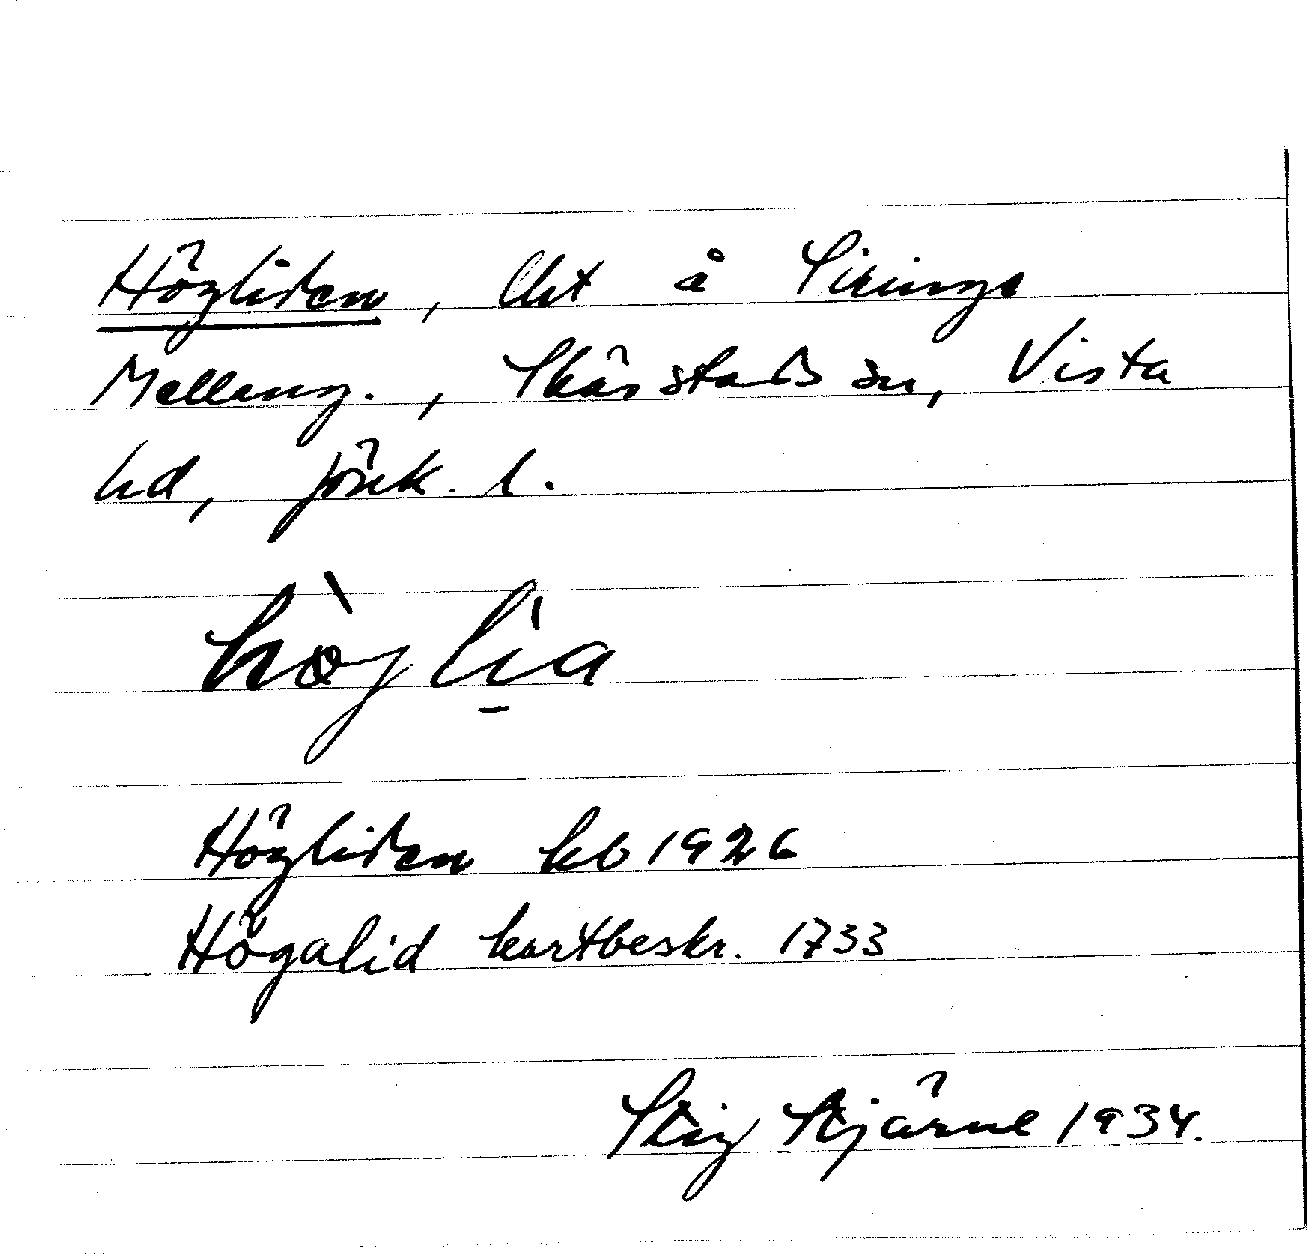 Högliden, lht å Siringe
Melleng., Skärstads sn, Vista
hd, Jönk. l.
hòglia
Högliden kb 1926
Högalid kartbeskr. 1733
Stig Stjärne 1934.